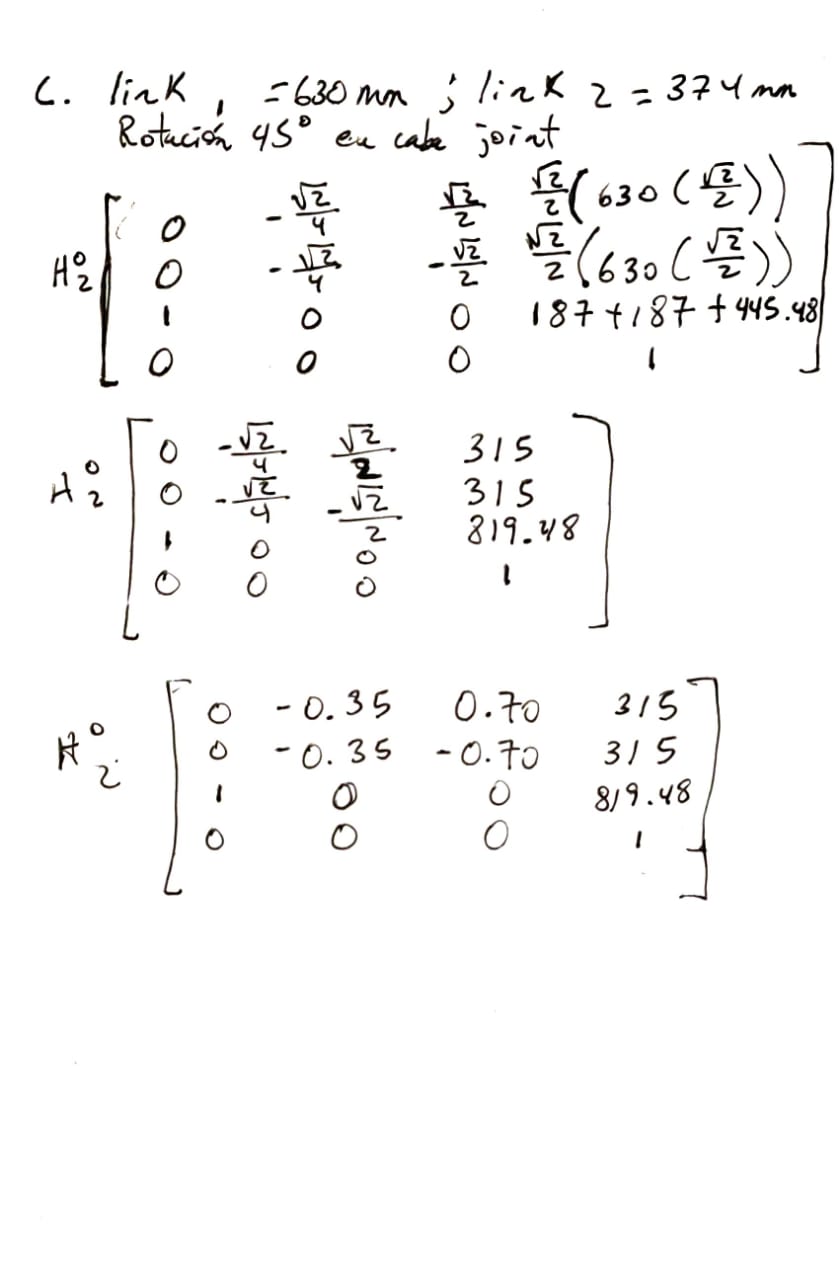 C. link 1 = 630 mm ; link 2 = 374 mm
Rotación 45° en cada joint
H⁰₂ [ 0 -√2/4 √2/2 √2/2(630(√2/2))
0 -√2/4 -√2/2 √2/2(630(√2/2))
1 0 0 187+187+445.48
0 0 0 1 ]
H⁰₂ [ 0 -√2/4 √2/2 315
0 -√2/4 -√2/2 315
1 0 0 819.48
0 0 0 1 ]
H⁰₂ [ 0 -0.35 0.70 315
0 -0.35 -0.70 315
1 0 0 819.48
0 0 0 1 ]